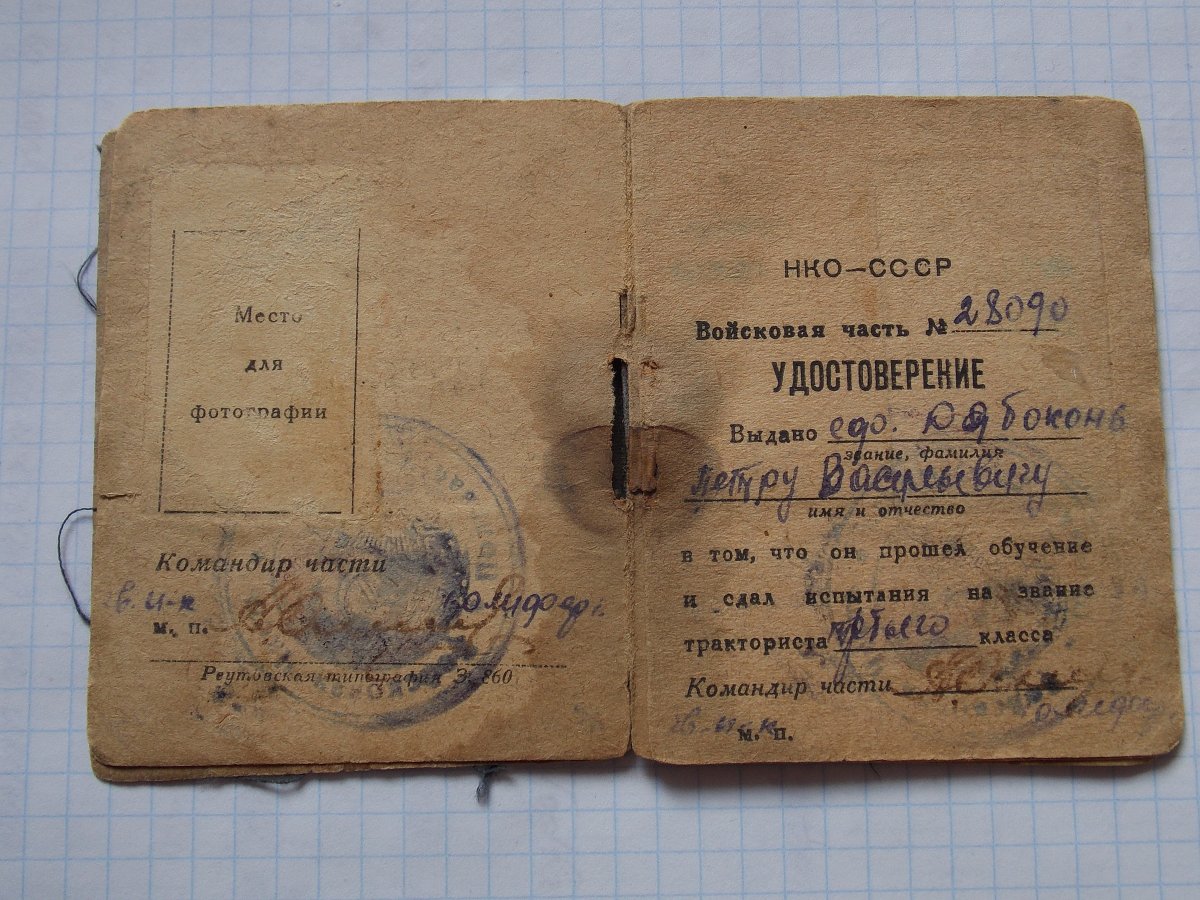 Место
для
фотографии
Командир части
м. п.
Реутовская типография З. 860
НКО—СССР
Войсковая часть № 28090
УДОСТОВЕРЕНИЕ
Выдано
звание, фамилия
Петру Васильевичу
имя и отчество
в том, что он прошел обучение
и сдал испытания на звание
тракториста третьего класса
Командир части
м. п.